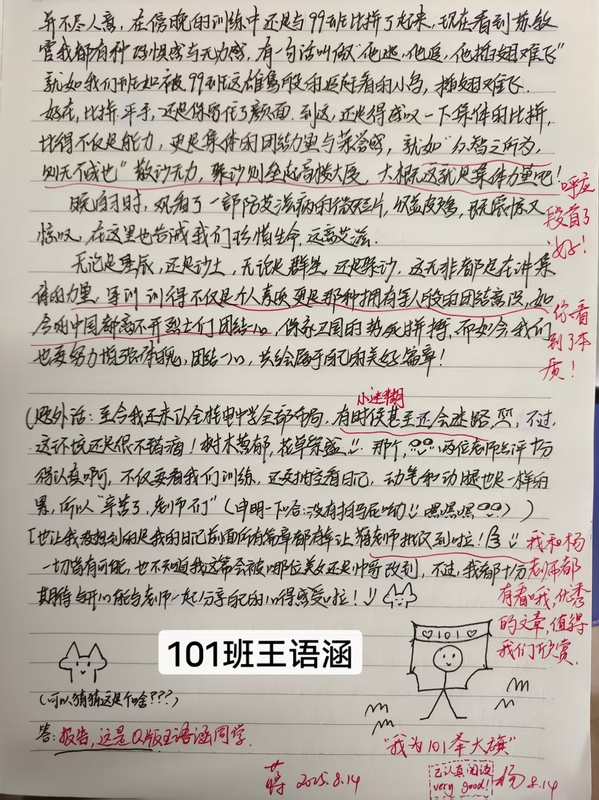 并不尽人意，在傍晚的训练中还是与99班比拼了起来，现在看到苏教
官我都有种恐惧感与无力感，有一句话叫做“他逃，他追，他插翅难飞”
就如我们班如被99班这雄鹰般的班盯着的小鸟，插翅难飞
好在，比拼平手，还是保留住了颜面。到这，还是得感叹一下集体的比拼，
比得不仅是能力，更是集体的团结力量与荣誉感，就如“众智之所为，
则无不成也”散沙无力，聚沙则垒起高楼大厦，大概这就是集体力量吧！
呼应
段首了
好！
晚间时，观看了一部防艾滋病的微短片，
惊叹，在这里也告诫我们珍惜生命，远离艾滋。
无论是星辰，还是沙土，无论是群星，还是聚沙，这无非都是在讲集
体的力量，军训训得不仅是个人素质更是那种拥有军人般的团结意识，如
今的中国都离不开烈士们团结一心，保家卫国的热血拼搏，而如今我们
也要努力增强体魄，团结一心，共绘属于自己的美好篇章！
你看
到了本
质！
小迷糊
（题外话：至今我还未认全桂电中学全部布局，有时候甚至还会迷路，不过，
这环境还是很不错滴！树木葱郁，花草荣盛!! 那个，两位老师点评十分
得认真啊，不仅要看我们训练，还要抽空看日记，动笔和动腿也是一样的
累，所以“辛苦了，老师们”（申明一下哈：没有拍马屁呦 嘿嘿嘿）
【也让我没想到的是我的日记前面所有篇章都有幸让杨老师批改到啦！
一切皆有可能，也不知道我这篇会被哪位美女还是帅哥改到，不过，我都十分
期待与开心能与老师一起分享自己的心得感受啦！
我和杨
老师都
有看哦，优秀
的文章，值得
我们欣赏
101班王语涵
♡101♡
（可以猜猜这是个啥???）
答：报告，这是Q版王语涵同学.
“我为101举大旗”
蒋 2025.8.14
已认真阅读
very good!
杨 8.14